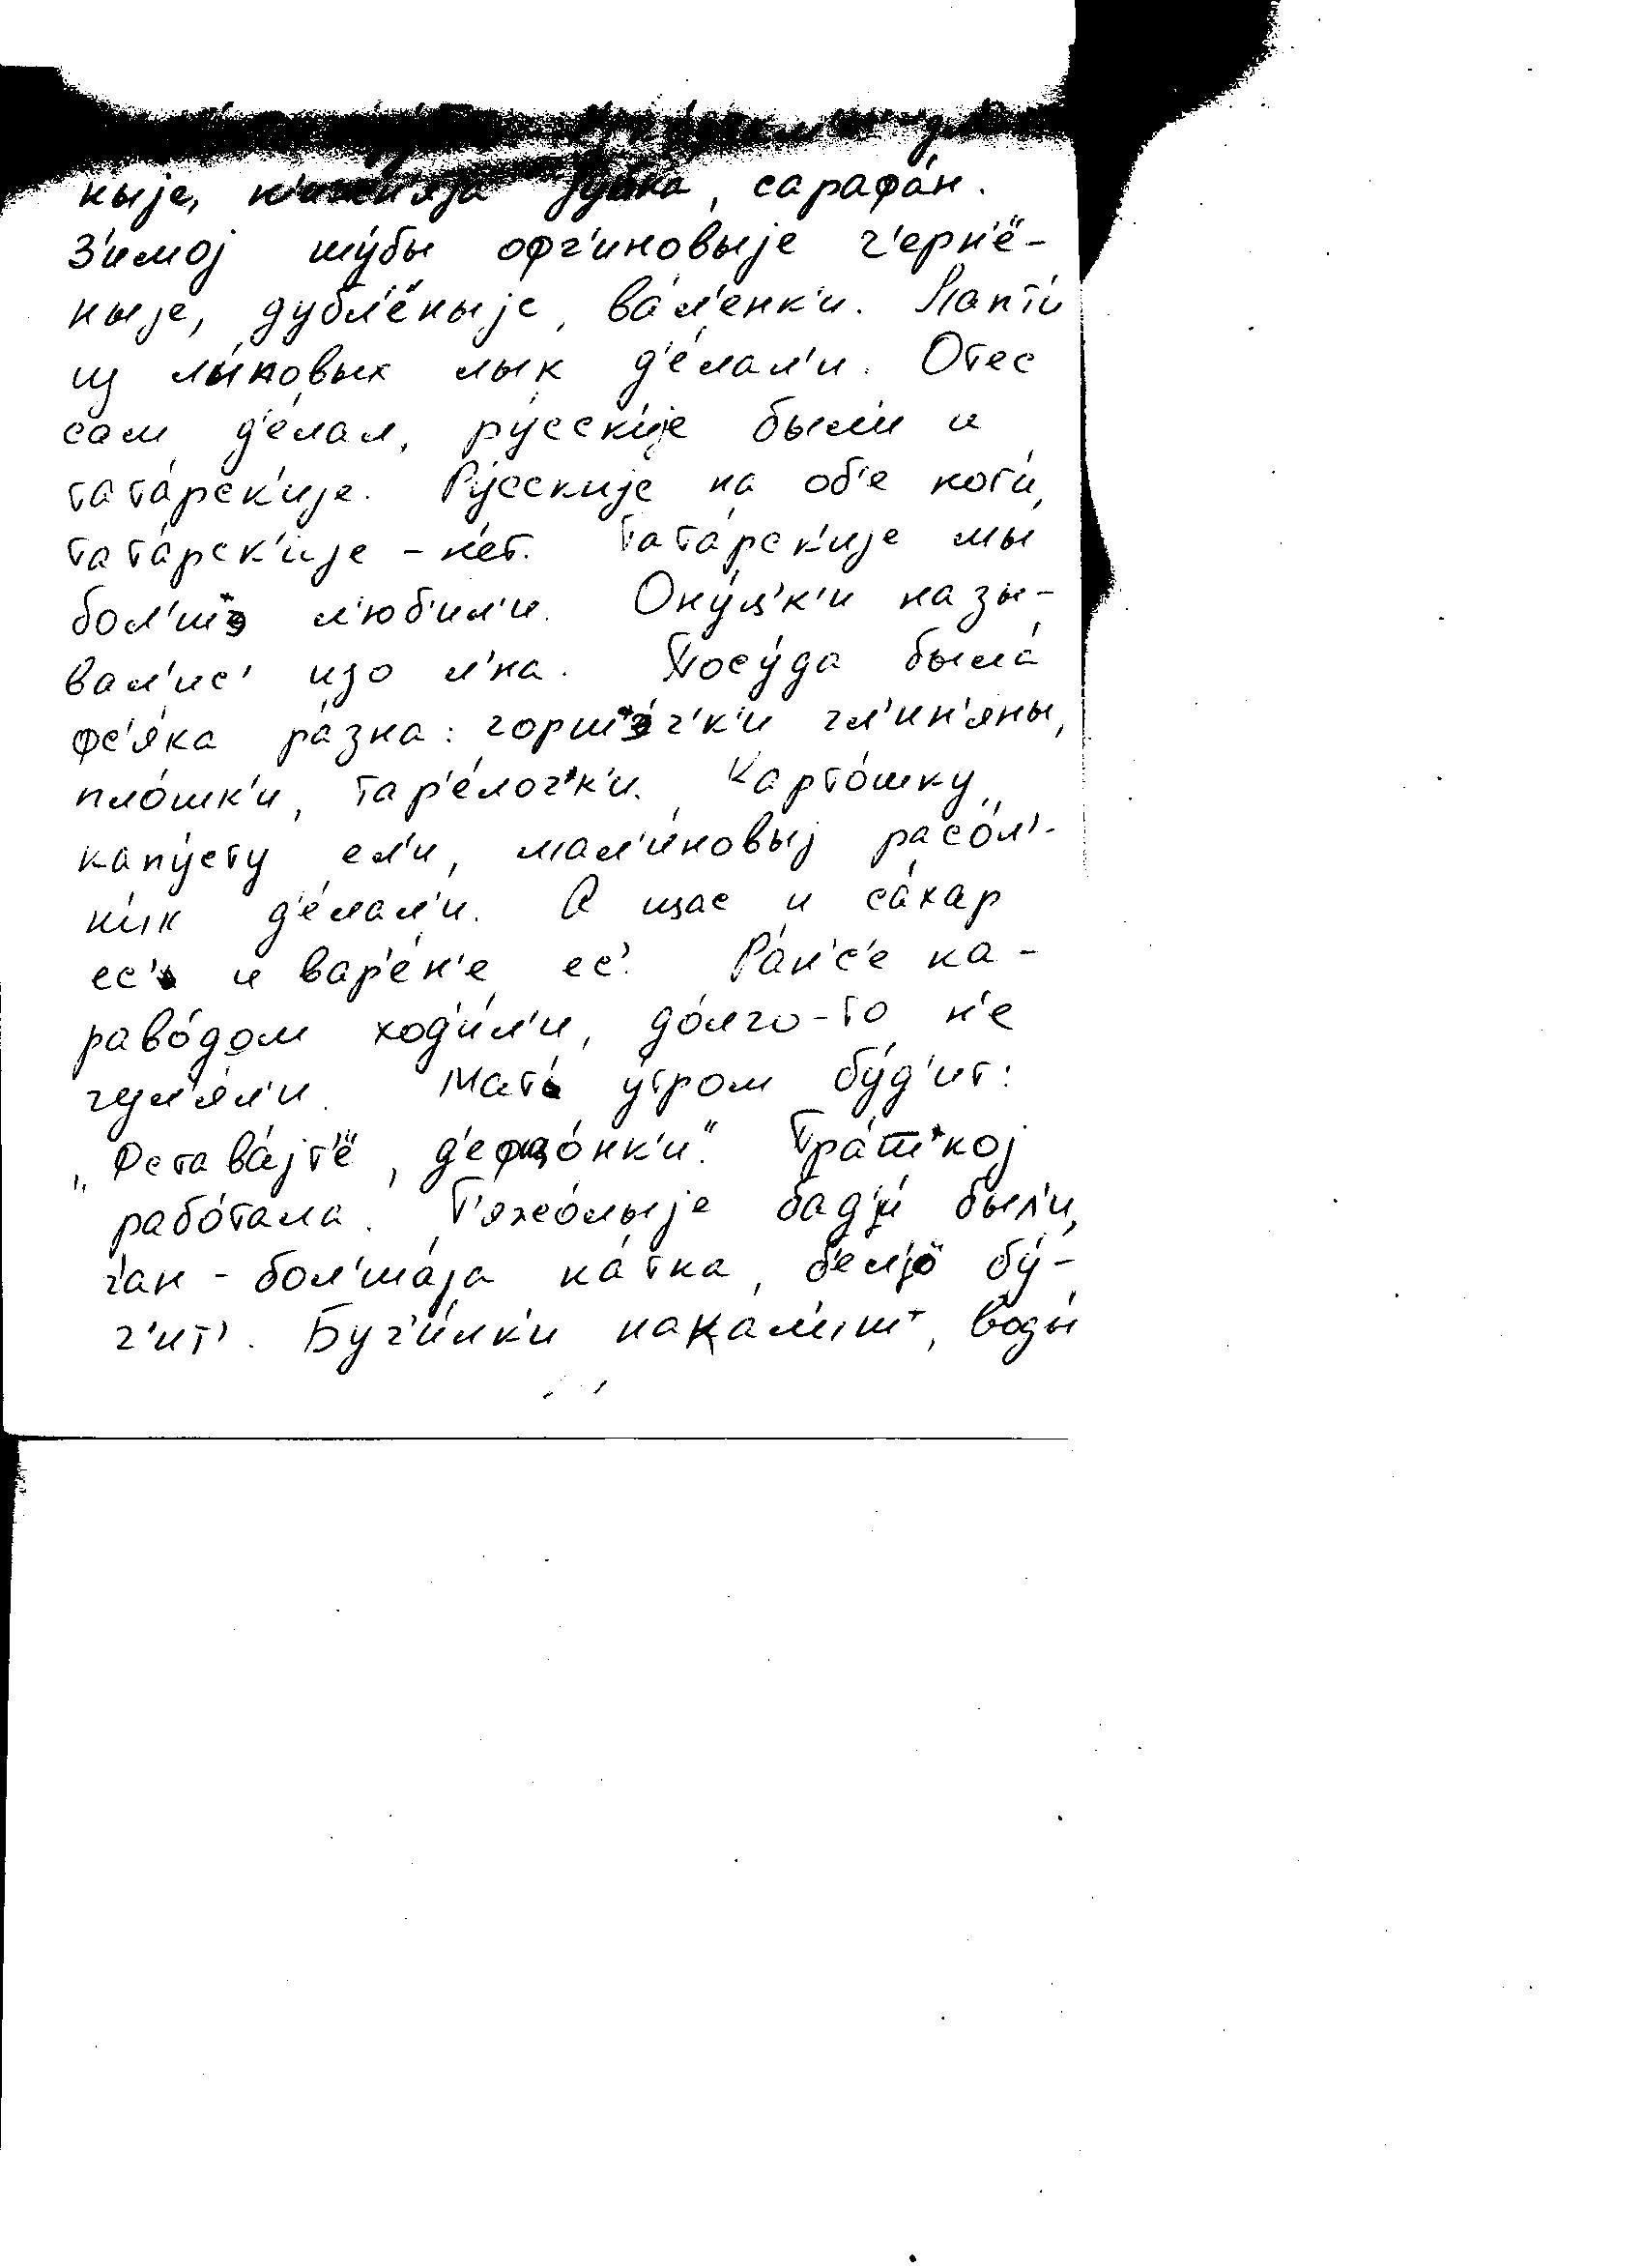 ныjе, н'ижн'яjа jупка, сарафа́н.
З'имоj шу́бы офч'иновыjе ч'ерн'ё-
ныjе, дубл'ёныjе, ва́л'енк'и. Лапти́
из лы́ковых лык д'е́лал'и. Отес
сам д'е́лал, ру́сск'иjе были́ и
тата́рск'иjе. Ру́сскиjе на об'е ноги́,
тата́рск'иjе – н'ет. Тата́рск'иjе мы́
бол'шэ л'юб'ил'и. Ону́ц'к'и назы-
вал'ис' изо л'на. Посу́да была́
фс'я́ка ра́зна: горшэ́ч'к'и гл'ин'яны,
пло́шк'и, тар'е́лоч'к'и. Карто́шку,
капу́сту ел'и, мал'и́новыj расо́л'-
н'ик д'е́лал'и. А щас и са́хар
ес' и вар'е́н'е ес'. Ра́н'с'е ка-
раво́дом ход'и́л'и, до́лго-то н'е
гул'я́л'и. Мат' у́тром бу́д'ит:
„Фстава́jт'ё, д'ефщо́нк'и". Пра́шкоj
рабо́тала. Т'яжо́лыjе бадjи́ был'и,
ч'ан – бол'ша́jа ка́тка, б'ел'jо бу́-
ч'ит'. Буч'и́лк'и нака́л'иш, воды́